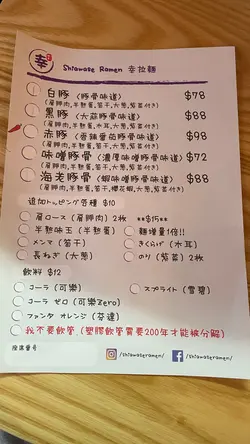 幸
Shiawase Ramen 幸拉麵
白豚 (豚骨味道) $78
(肩脾肉,半熟蛋,笋干,大葱,紫菜付き)
黑豚 (大蒜豚骨味道) $88
(肩脾肉,半熟蛋,木耳,大葱,紫菜付き)
赤豚 (香辣蕃茄豚骨味道) $98
(肩脾肉,半熟蛋,笋干,大葱,紫菜付き)
味噌豚骨 (濃厚味噌豚骨味道) $72
(肩脾肉,半熟蛋,笋干,大葱,紫菜付き)
海老豚骨 (蝦味噌豚骨味道) $88
(肩脾肉,半熟蛋,笋干,櫻花蝦,大葱,紫菜付き)
追加トッピング各種 $10
肩ロース (肩脾肉) 2枚 **$15**
半熟味玉 (半熟蛋) 麵增量1倍!!
メンマ (笋干) きくらげ (木耳)
長ねぎ (大葱) のり (紫菜) 2枚
飲料 $12
コーラ (可樂) スプライト (雪碧)
コーラ ゼロ (可樂Zero)
ファンタ オレンジ (芬達)
我不要飲管. (塑膠飲管需要200年才能被分解)
座席番号
/shiawaseramen/ /shiawaseramen/